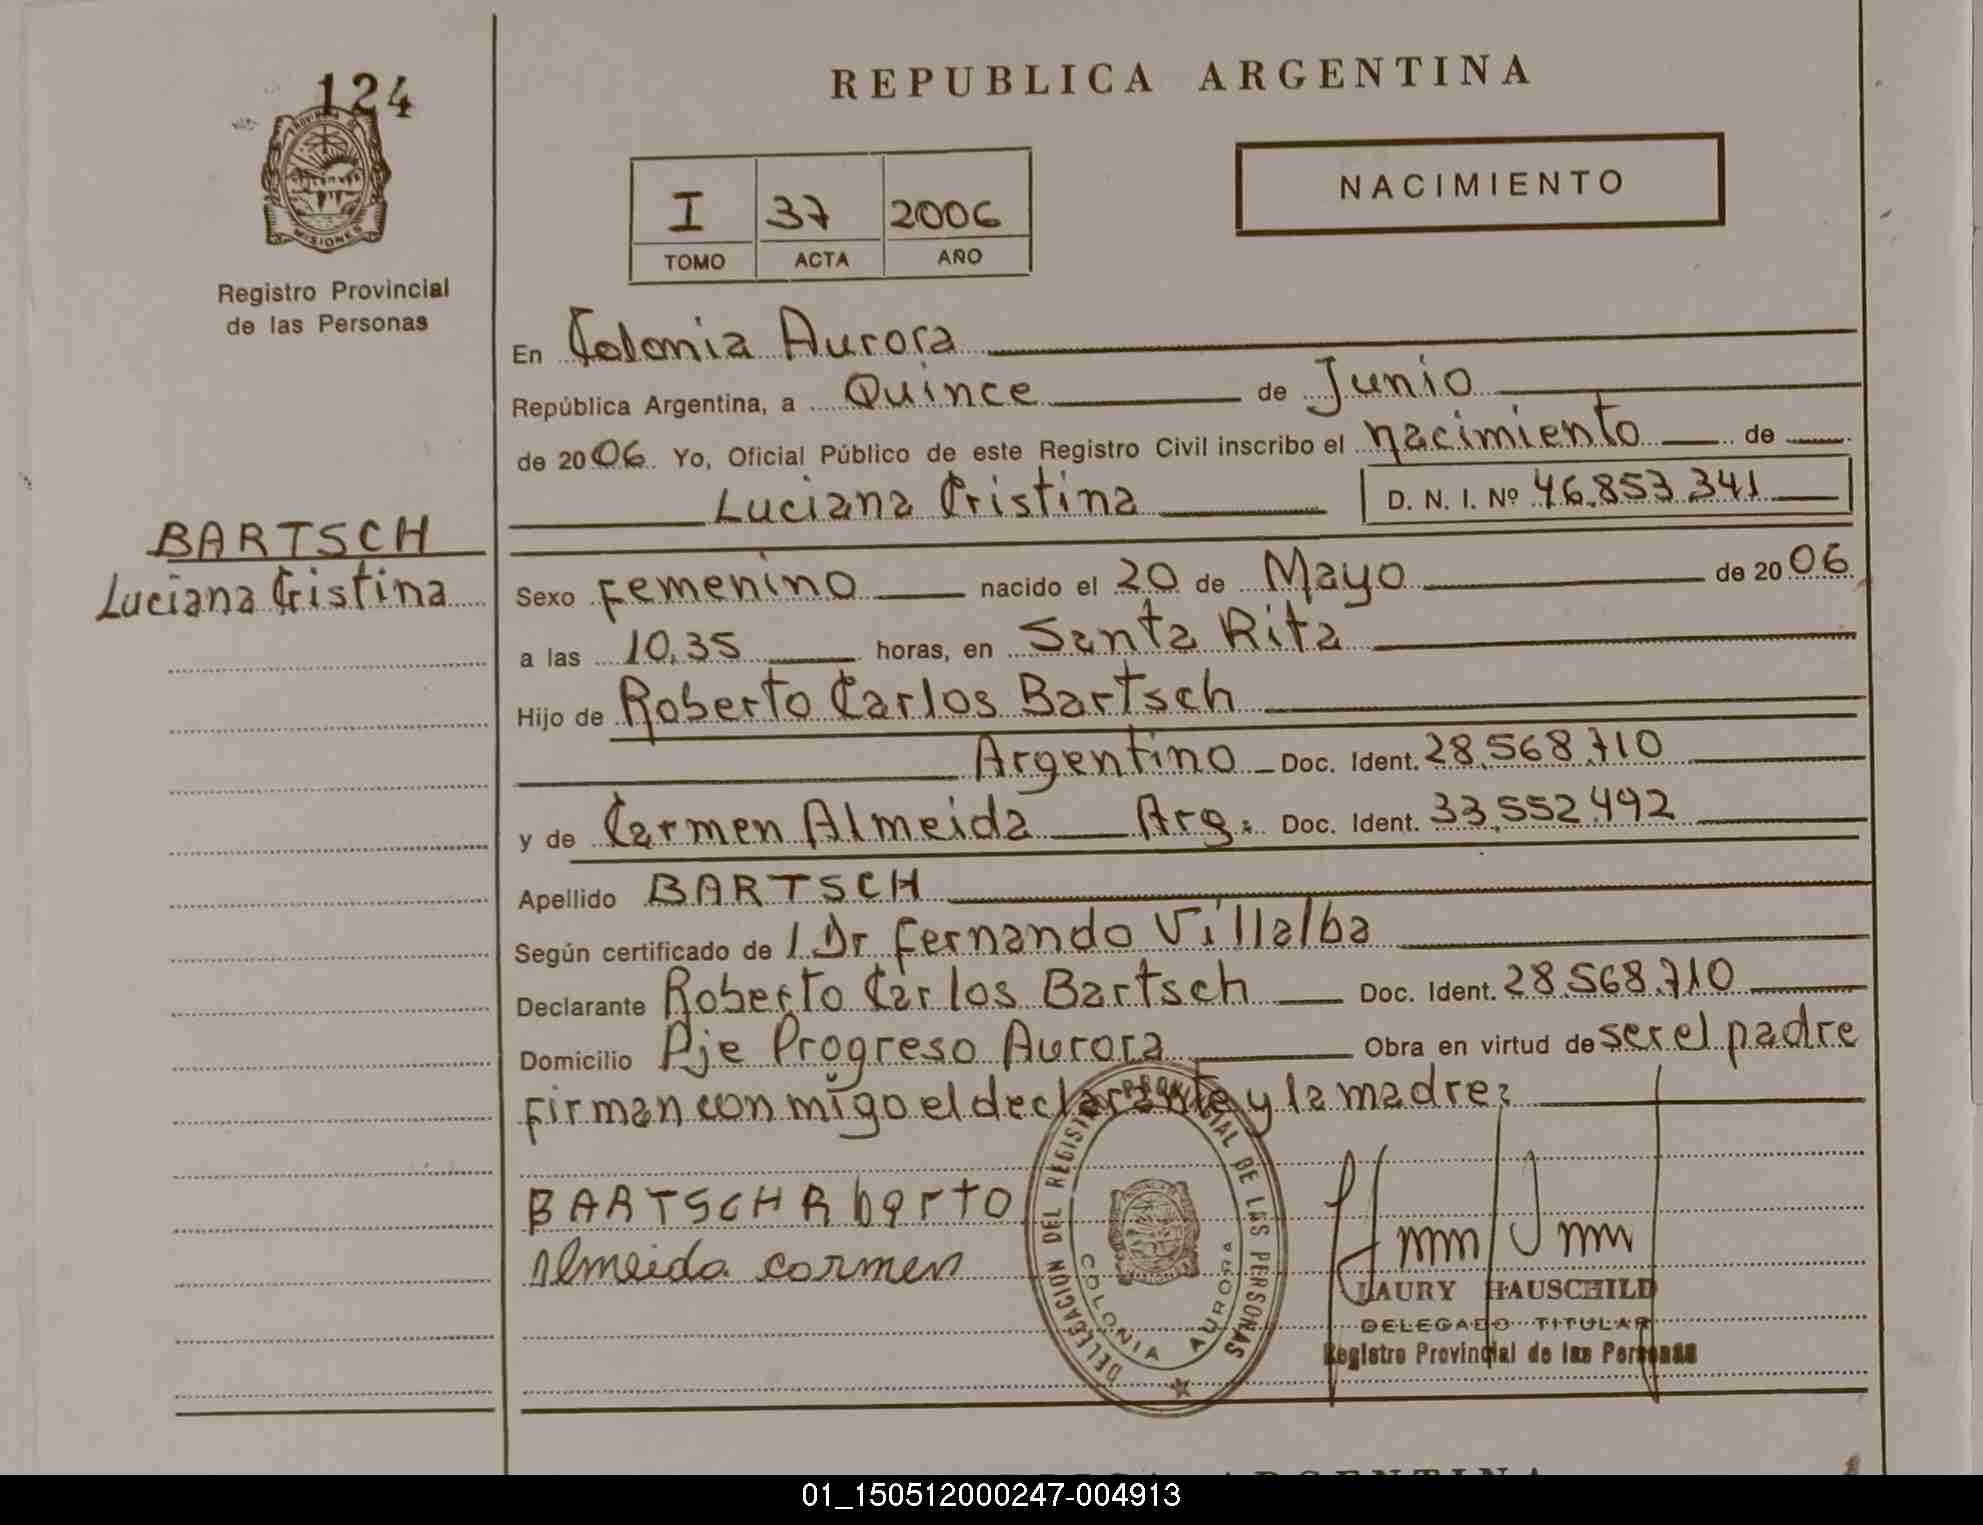 124
PROVINCIA DE
MISIONES
Registro Provincial
de las Personas
REPUBLICA ARGENTINA
NACIMIENTO
I 37 2006
TOMO ACTA AÑO
En Colonia Aurora
República Argentina, a Quince de Junio
de 2006. Yo, Oficial Público de este Registro Civil inscribo el nacimiento de
Luciana Cristina D. N. I. Nº 46.853.341
BARTSCH
Luciana Cristina
Sexo Femenino nacido el 20 de Mayo de 2006
a las 10,35 horas, en Santa Rita
Hijo de Roberto Carlos Bartsch
Argentino Doc. Ident. 28.568.710
y de Carmen Almeida Arg: Doc. Ident. 33.552.492
Apellido BARTSCH
Según certificado de 1 Dr Fernando Villalba
Declarante Roberto Carlos Bartsch Doc. Ident. 28.568.710
Domicilio Pje Progreso Aurora Obra en virtud de ser el padre
firman con migo el declarante y la madre:
BARTSCH Rberto
almeida carmen
DELEGACIÓN DEL REGISTRO PROVINCIAL DE LAS PERSONAS
COLONIA AURORA
LAURY HAUSCHILD
DELEGADO TITULAR
Registro Provincial de las Personas
ARGENTINA
01_150512000247-004913